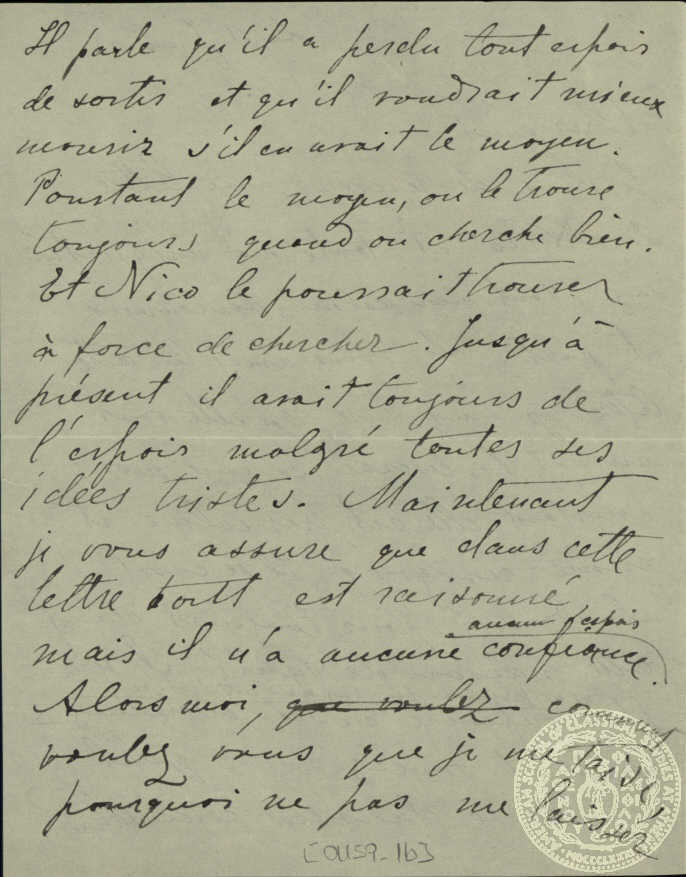 Il parle qu'il a perdu tout espoir
de sortir et qu'il voudrait mieux
mourir s'il en avait le moyen.
Pourtant le moyen, on le trouve
toujours quand on cherche bien.
Et Nico le pourrait trouver
à force de chercher. Jusqu'à
présent il avait toujours de
l'espoir malgré toutes ses
idées tristes. Maintenant
je vous assure que dans cette
lettre tout est raisonné
aucun espoir
mais il n'a aucune confiance.
Alors moi, que voulez comment
voulez vous que je me taise,
pourquoi ne pas me laisser
[0159-1b]